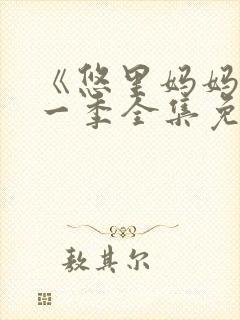 《悠里妈妈
一季全集免
敖其尔